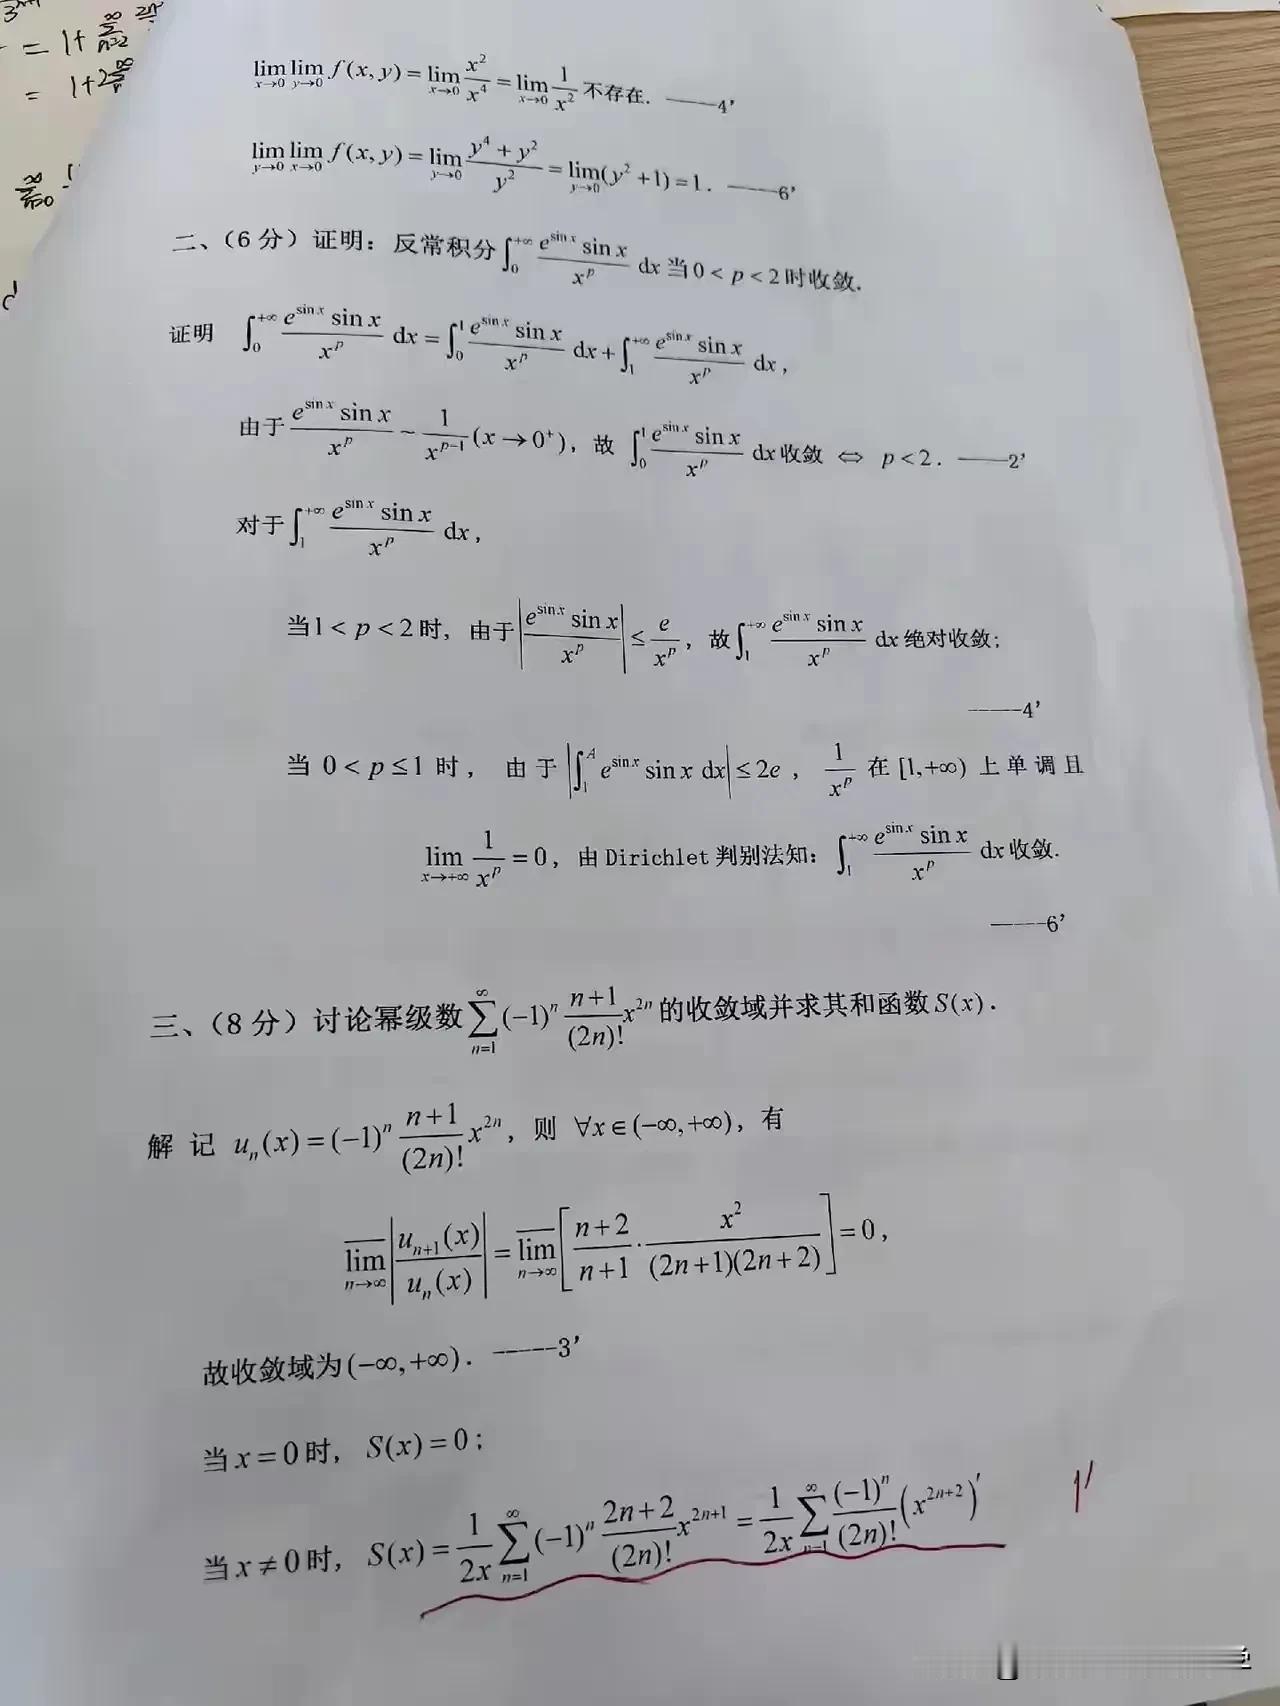 = 1+ ∞ Σ n=2
= 1+2Σ
lim x→0 lim y→0 f(x,y) = lim x→0 x²/x⁴ = lim x→0 1/x² 不存在. ——4'
lim y→0 lim x→0 f(x,y) = lim y→0 (y⁴+y²)/y² = lim y→0 (y²+1) = 1. ——6'
二、(6分) 证明: 反常积分 ∫₀^{+∞} (e^{sin x} sin x)/x^p dx 当 0<p<2 时收敛.
证明 ∫₀^{+∞} (e^{sin x} sin x)/x^p dx = ∫₀^1 (e^{sin x} sin x)/x^p dx + ∫₁^{+∞} (e^{sin x} sin x)/x^p dx,
由于 (e^{sin x} sin x)/x^p ~ 1/x^{p-1} (x→0⁺), 故 ∫₀^1 (e^{sin x} sin x)/x^p dx 收敛 ⇔ p<2. ——2'
对于 ∫₁^{+∞} (e^{sin x} sin x)/x^p dx,
当1<p<2时, 由于 |(e^{sin x} sin x)/x^p| ≤ e/x^p, 故 ∫₁^{+∞} (e^{sin x} sin x)/x^p dx 绝对收敛;
——4'
当 0<p≤1 时, 由于 |∫₁^A e^{sin x} sin x dx| ≤ 2e, 1/x^p 在 [1,+∞) 上单调且
lim x→+∞ 1/x^p = 0, 由 Dirichlet 判别法知: ∫₁^{+∞} (e^{sin x} sin x)/x^p dx 收敛.
——6'
三、(8分) 讨论幂级数 ∑_{n=1}^∞ (-1)^n (n+1)/(2n)! x^{2n} 的收敛域并求其和函数 S(x).
解 记 u_n(x) = (-1)^n (n+1)/(2n)! x^{2n}, 则 ∀x∈(-∞,+∞), 有
lim n→∞ |u_{n+1}(x)/u_n(x)| = lim n→∞ [(n+2)/(n+1) · x²/((2n+1)(2n+2))] = 0,
故收敛域为(-∞,+∞). ——3'
当 x=0 时, S(x)=0;
当 x≠0 时, S(x) = 1/(2x) ∑_{n=1}^∞ (-1)^n (2n+2)/(2n)! x^{2n+1} = 1/(2x) ∑_{n=1}^∞ (-1)^n/(2n)! (x^{2n+2})' 1'